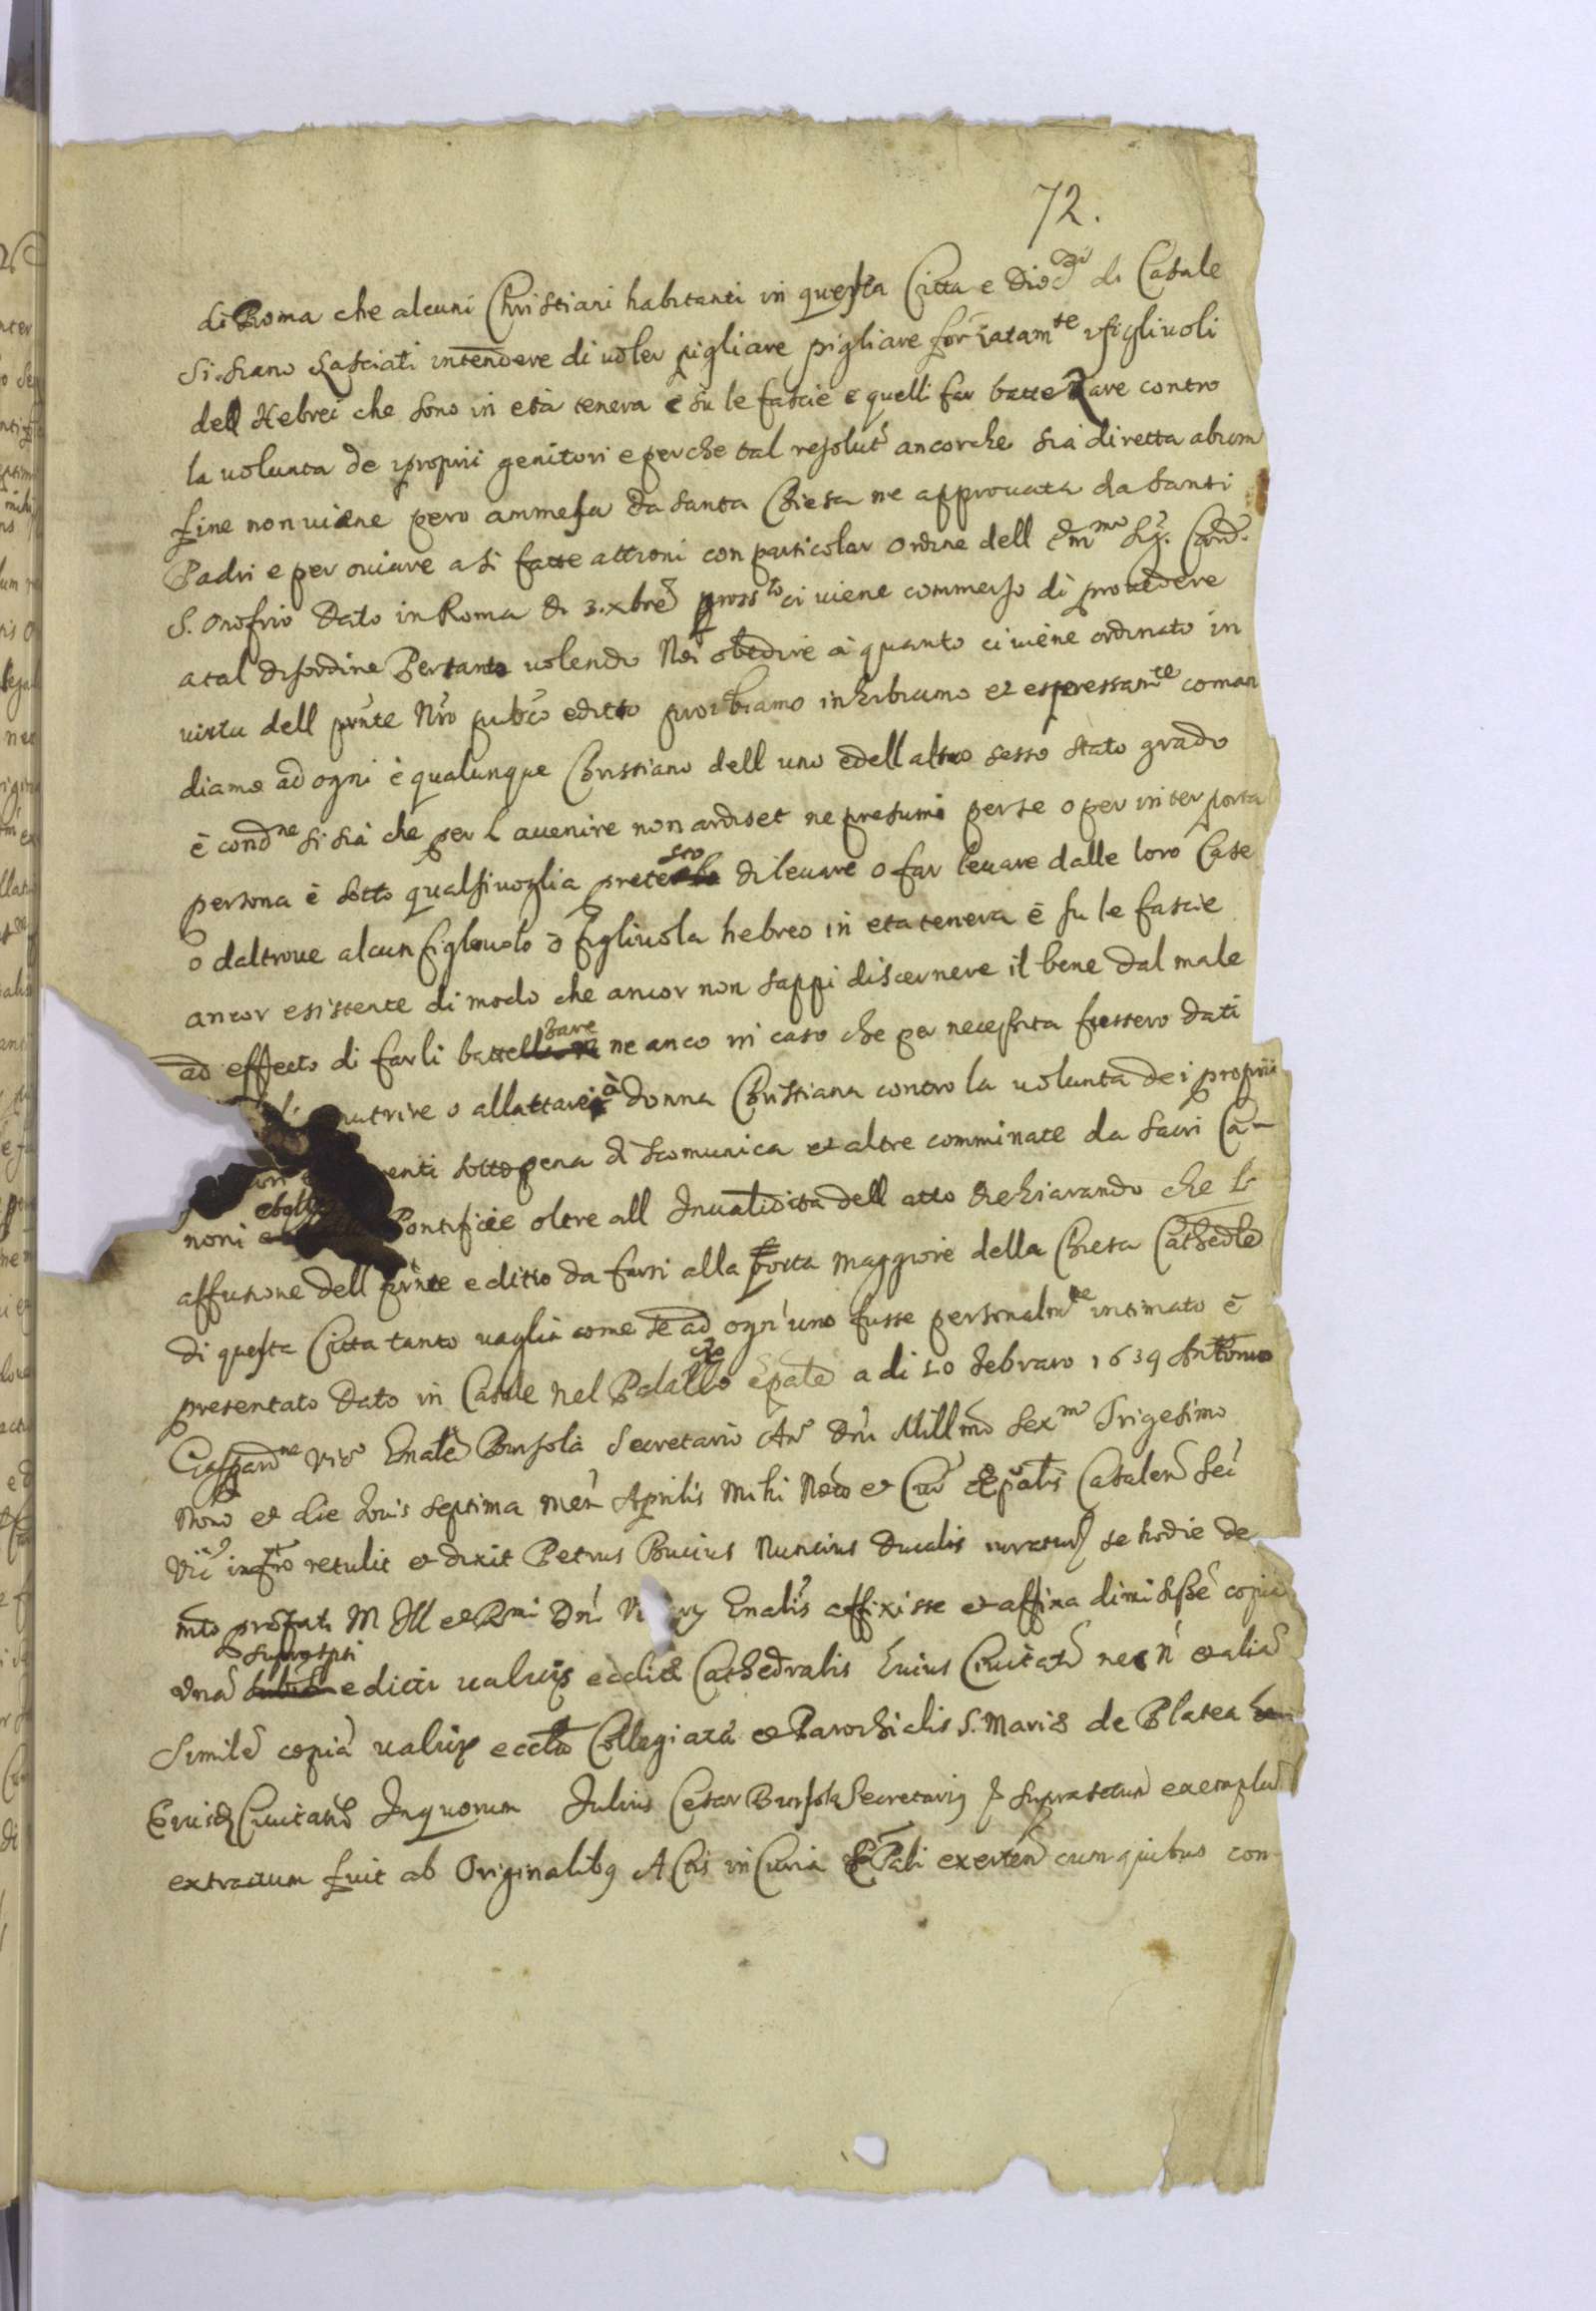 72.
di Roma che alcuni Christiani habitanti in questa Citta e Dioci di Casale
si siano Lasciati intendere di uoler pigliare pigliare forzatamte i figliuoli
dell Hebrei che sono in età tenera è sù le fascie e quelli far battezare contro
la uolunta de proprii genitori e perche tal resolut ancorche sia diretta a bum
fine non uiene pero ammessa da santa Chiesa ne approuata da santi
Padri e per ouiare a si fatte attioni con particolar ordine dell Emmo Sig. Card.
S. Onofrio dato in Roma di 3. xbre pross to ci uiene commesso di prouedere
a tal disordine Pertanto uolendo Noi obedire à quanto ci uiene ordinato in
uirtu dell pnte Nro pubco editto proibiamo inhibiamo et espressamte coman
diamo ad ogni è qualunque Christiano dell uno e dell altro sesso stato grado
è condne si sià che per l auuenire non ardisct ne presumi per se o per interposta
persona è sotto qualsiuoglia pretesto di leuare o far leuare dalle loro Case
o daltroue alcun figliuolo ò figliuola hebreo in eta tenera è su le fascie
ancor esistente di modo che ancor non sappi discernere il bene dal male
ad effecto di farli battezare ne anco in caso che per necessita fussero dati
nutrire o allattare à donna Christiana contro la uolunta dei proprii
enti sotto pena di scomunica et altre comminate da sacri Ca-
noni Pontificie oltre all Inualidita dell atto dichiarando che L
affissione dell pnte editto da farsi alla porta maggiore della Chiesa Cathedle
di questa Citta tanto uaglia come se ad ogn'uno fusse personalmte intimato è
presentato dato in Casale nel Palazzo Epale a di 20 febraro 1639 Antonio
Gaspardne Vico Gnale Bursola Secretario Ano Dni Millmo Sexmo Trigesimo
Nono et die Jouis septima men Aprilis mihi Noto et Cur Epalis Casalen Sei
Vic infro retulit et dixit Petrus Bucius Nuncius Ducalis iuratus se hodie de
mto prefati M Ill et Rmi Dni Gnalis affixisse et affixa dimisisse copia
una suprascpti edicti ualuis ecclie Cathedralis huius Ciuitatis nec n et alia
simile copia ualuis eccle Collegiata et Parochialis S. Mariæ de Platea
eiusd Ciuitatis Inquorum Julius Cesar Bursola Secretarius p suprascptum exemplum
extractum fuit ab Originalibus Actis in Curia Epali exerten cum quibus con-